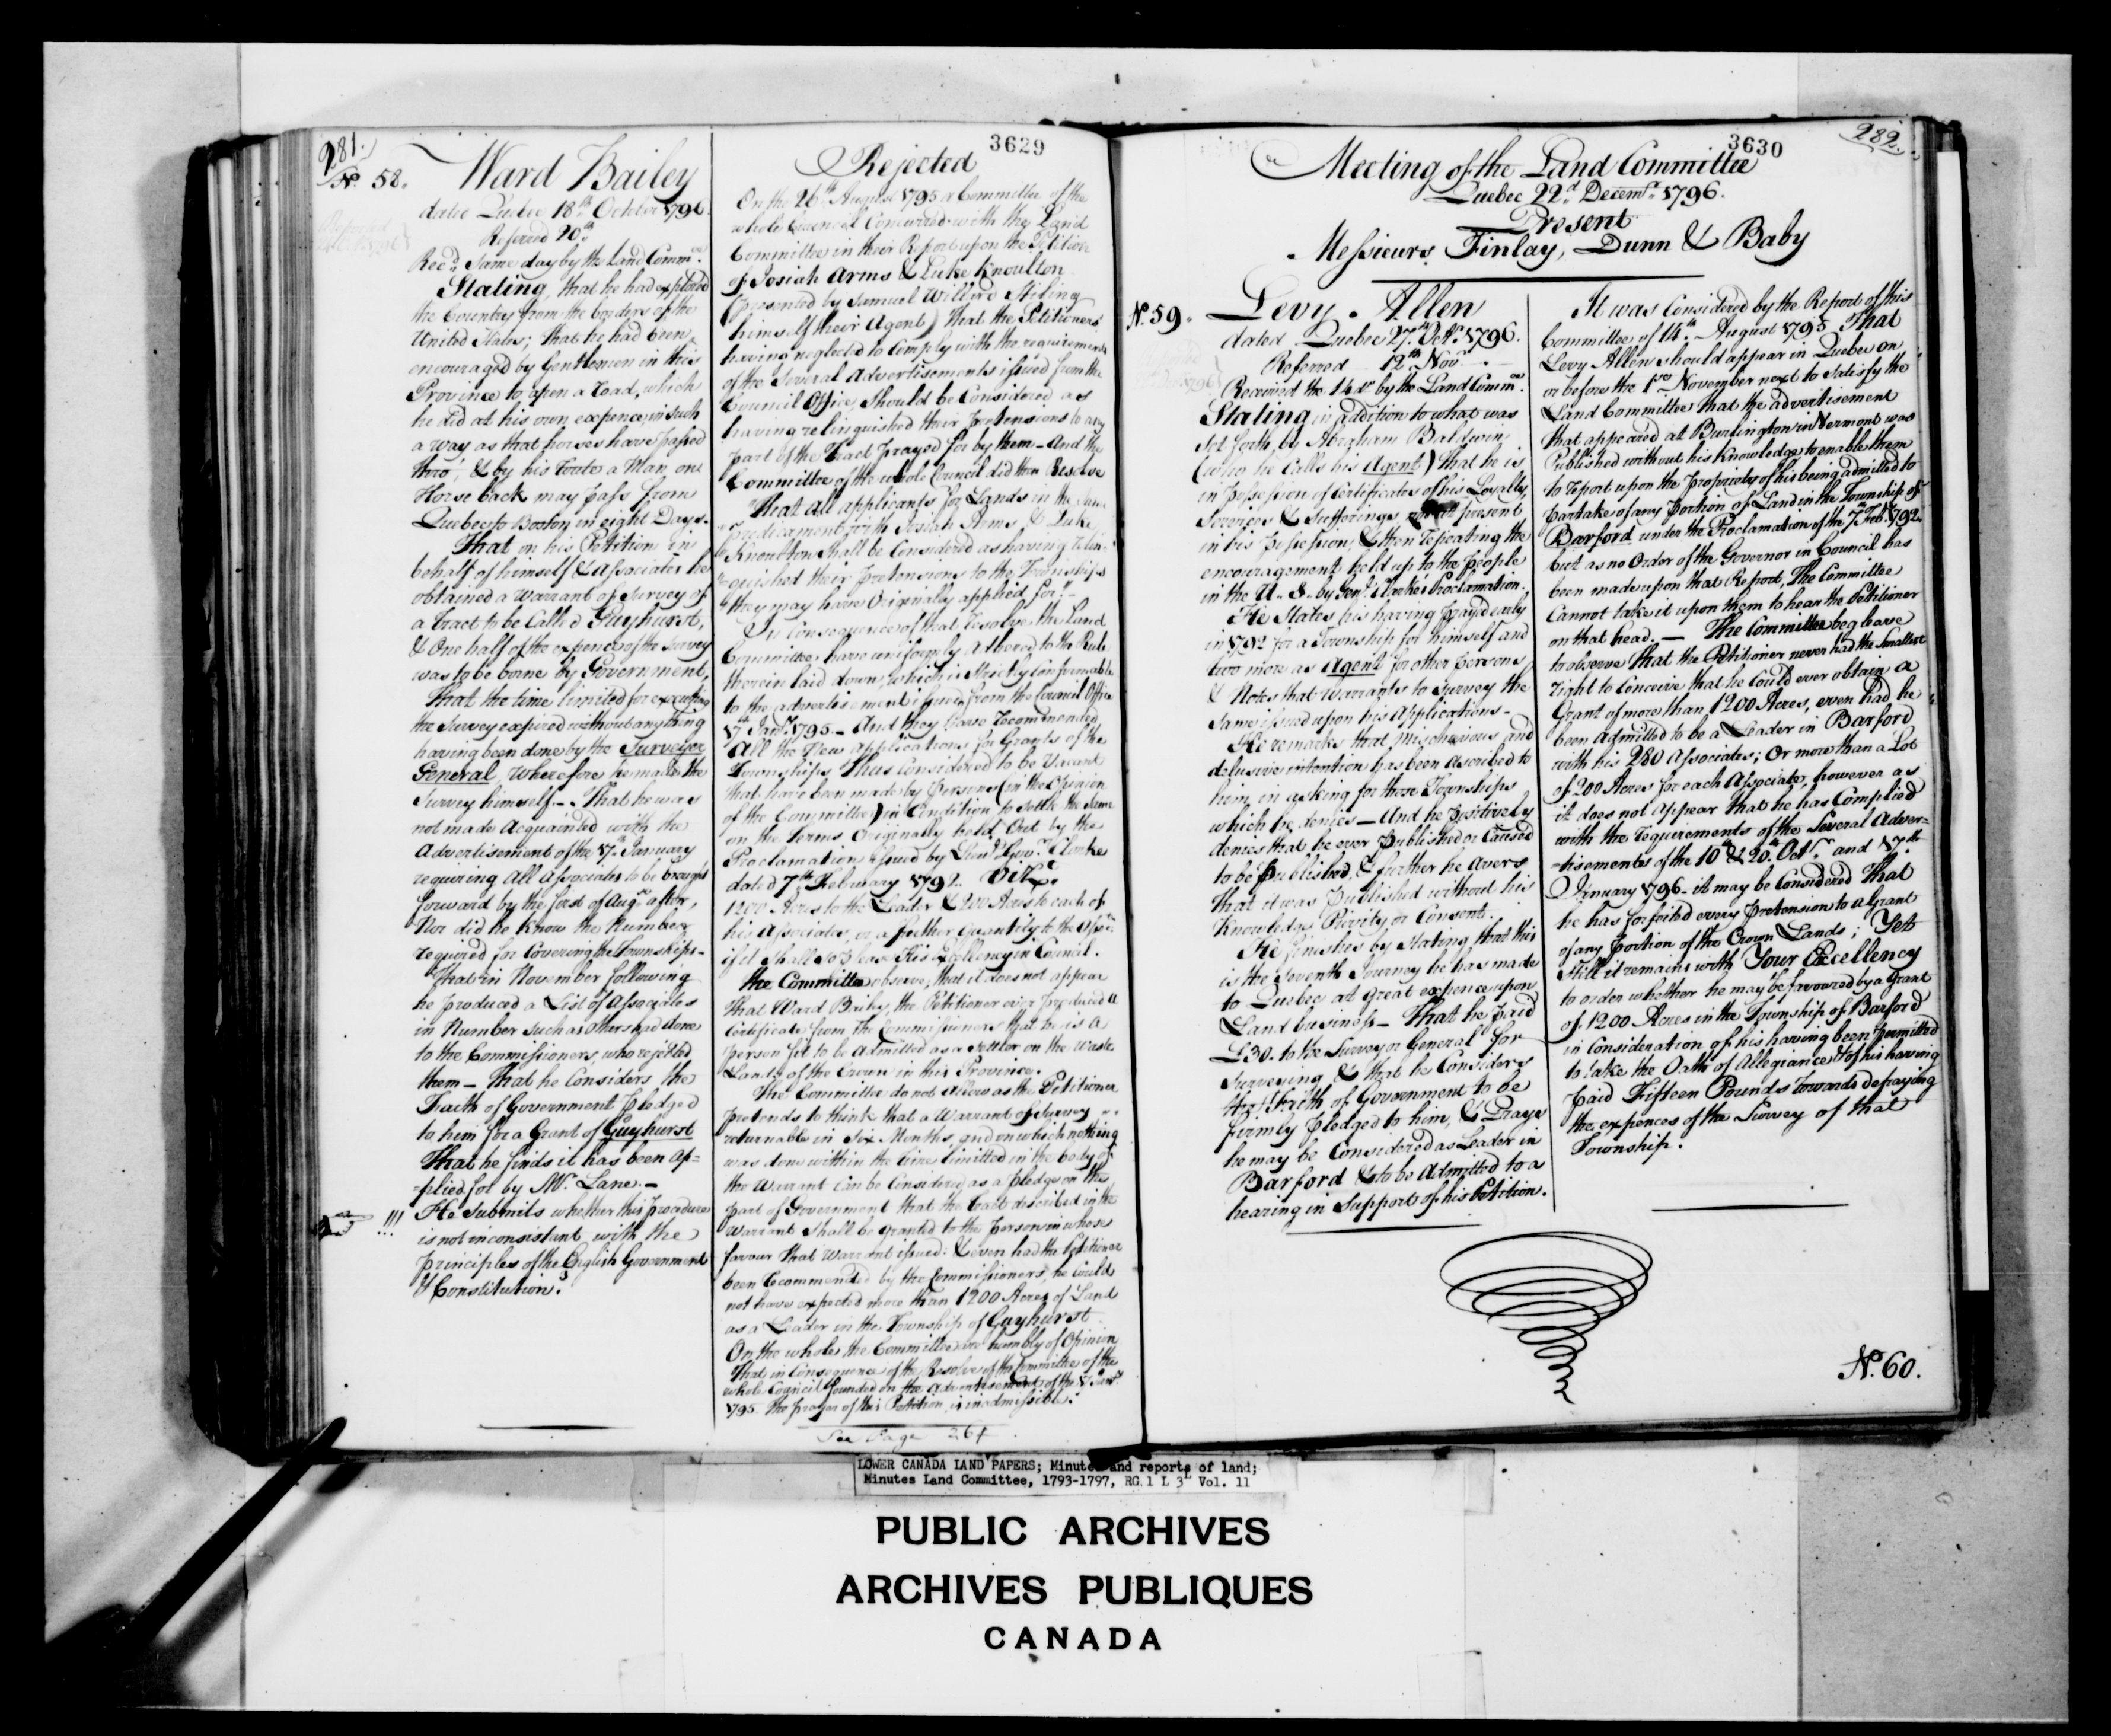 281.
3629
No. 58. Ward Bailey
dated Quebec 18th October 1796.
Referred 20th
Recd. same day by the Land Commee.
Stating, that he had explored
the Country from the borders of the
United States; that he had been
encouraged by Gentlemen in this
Province to open a road, which
he did at his own expence, in such
a way as that horses have passed
thro', & by his route a Man on
Horse back may pass from
Quebec to Boston in eight Days.
That on his Petition in
behalf of himself & Associates he
obtained a Warrant of Survey of
a tract to be Called Gayhurst,
& One half of the expence of the survey
was to be borne by Government,
That the time limited for executing
the Survey expired without any thing
having been done by the Surveyor
General, wherefore he made the
Survey himself. - That he was
not made Acquainted with the
Advertisement of the 17th January
requiring All Associates to be brought
forward by the first of Augt. after,
Nor did he know the Number
required for Covering the Townships -
That in November following
he produced a List of Associates
in Number such as others had done
to the Commissioners, who rejected
them - That he Considers the
Faith of Government pledged
to him for a Grant of Gayhurst
That he finds it has been ap=
=plied for by Mr. Lane. -
!!! He Submits whether this procedure
is not inconsistant with the
principles of the English Government
& Constitution?
Rejected
On the 26th August 1795 a Committee of the
whole Council Concurred with the Land
Committee in their Report upon the Petition
of Josiah Arms & Luke Knoulton
(presented by Samuel Willard Stiling
himself their Agent) That the Petitioners
having neglected to Comply with the requirements
of the Several Advertisements issued from the
Council Office Should be Considered as
having relinquished their pretensions to any
part of the Tract prayed for by them - And the
Committee of the whole Council did then Resolve
That all applicants for Lands in the same
predicament with Josiah Arms, & Luke
Knoulton shall be Considered as having relin-
quished their pretensions to the Townships
they may have Originally applied for." -
In Consequence of that resolve the Land
Committee have uniformly adhered to the Rule
therein laid down, which is strictly conformable
to the advertisement issued from the Council Office
17th Jany. 1795. - And they have recommended
All the New applications for Grants of the
Townships Thus Considered to be Vacant
that have been made by Persons (in the Opinion
of the Committee) in Condition to settle the same
on the Terms Originally held Out by the
Proclamation issued by Lieut. Govr. Clarke
dated 7th February 1792. Vizt.
1200 Acres to the Leader & 200 Acres to each of
his Associates, or a further Quantity to the
if it shall so please His Excellency in Council.
the Committee observe, that it does not appear
That Ward Bailey, the Petitioner ever produced a
Certificate from the Commissioners that he is a
person fit to be Admitted as a Settler on the Waste
Lands of the Crown in this Province.
The Committee do not allow as the Petitioner
pretends to think that a Warrant of Survey
returnable in Six Months, and on which nothing
was done within the time limitted in the body of
the Warrant can be Considered as a pledge on the
part of Government that the tract described in the
Warrant shall be granted to the person in whose
favour that Warrant issued: & even had the Petitioner
been recommended by the Commissioners, he could
not have expected more than 1200 Acres of Land
as a Leader in the Township of Gayhurst
On the whole the Committee are humbly of Opinion
That in Consequence of the Resolve of the Committee of the
whole Council founded on the Advertisement of the 17 Jany.
1795 the prayer of this Petition is inadmissible.
See Page 267
3630
282.
Meeting of the Land Committee
Quebec 22d. Decemr. 1796.
Present
Messieurs Finlay, Dunn & Baby
No. 59. Levy Allen
dated Quebec 27th Octr. 1796.
Referred 12th Novr.
Received the 14 do. by the Land Commee.
Stating in addition to what was
set forth by Abraham Baldwin
(who he Calls his Agent) That he is
in possession of Certificates of his Loyalty
Services & Sufferings not at present
in his possession, & then repeating the
encouragement held up to the people
in the U. S. by Genl. Clarke's Proclamation.
He States his having prayed early
in 1792 for a Township for himself and
two more as Agent for other persons
& Notes that Warrants to Survey the
same issued upon his Applications -
He remarks that Mischievous and
delusive intention has been ascribed to
him in asking for those Townships
which he denies - And he positively
denies that he ever published or Caused
to be published, & further he avers
that it was published without his
Knowledge, Privity or Consent.
He finishes by Stating, that this
is the Seventh Journey he has made
to Quebec at great expence upon
Land business - That he paid
£30. to the Surveyor General for
surveying & that he Considers
the Faith of Government to be
firmly pledged to him, & Prays
he may be Considered as Leader in
Barford & to be Admitted to a
hearing in Support of his Petition.
It was Considered by the Report of this
Committee of 14th August 1795 That
Levy Allen should appear in Quebec on
or before the 1st November next to satisfy the
Land Committee that the advertisement
that appeared at Burlington in Vermont was
Published without his Knowledge to enable them
to report upon the propriety of his being admitted to
partake of any Portion of Land in the Township of
Barford under the Proclamation of the 7th Feby. 1792.
but as no Order of the Governor in Council has
been made upon that Report, The Committee
Cannot take it upon them to hear the Petitioner
on that head. - The Committee beg leave
to observe That the Petitioner never had the Smallest
right to Conceive that he Could ever obtain a
Grant of more than 1200 Acres, even had he
been admitted to be a Leader in Barford
with his 280 Associates; Or more than a Lot
of 200 Acres for each Associate, however as
it does not appear that he has Complied
with the requirements of the Several Adver=
=tisements of the 10th & 20th Octr. and 17th
January 1796 - it may be Considered That
he has forfeited every pretension to a Grant
of any portion of the Crown Lands; Yet
Still it remains with Your Excellency
to order whether he may be favoured by a Grant
of 1200 Acres in the Township of Barford
in Consideration of his having been permitted
to take the Oath of Allegiance & of his having
paid Fifteen Pounds towards defraying
the expences of the Survey of that
Township.
No. 60.
LOWER CANADA LAND PAPERS; Minutes and reports of land;
Minutes Land Committee, 1793-1797, RG 1 L 3L Vol. 11
PUBLIC ARCHIVES
ARCHIVES PUBLIQUES
CANADA